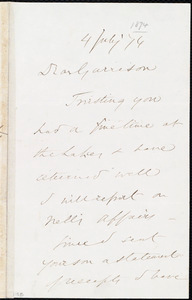 1874
4 July 74
Dear Garrison
Trusting you
had a fine time at
the Lakes & have
returned well
I will report on
Nell's Affairs -
Since I sent
you on a statement
receipts I have